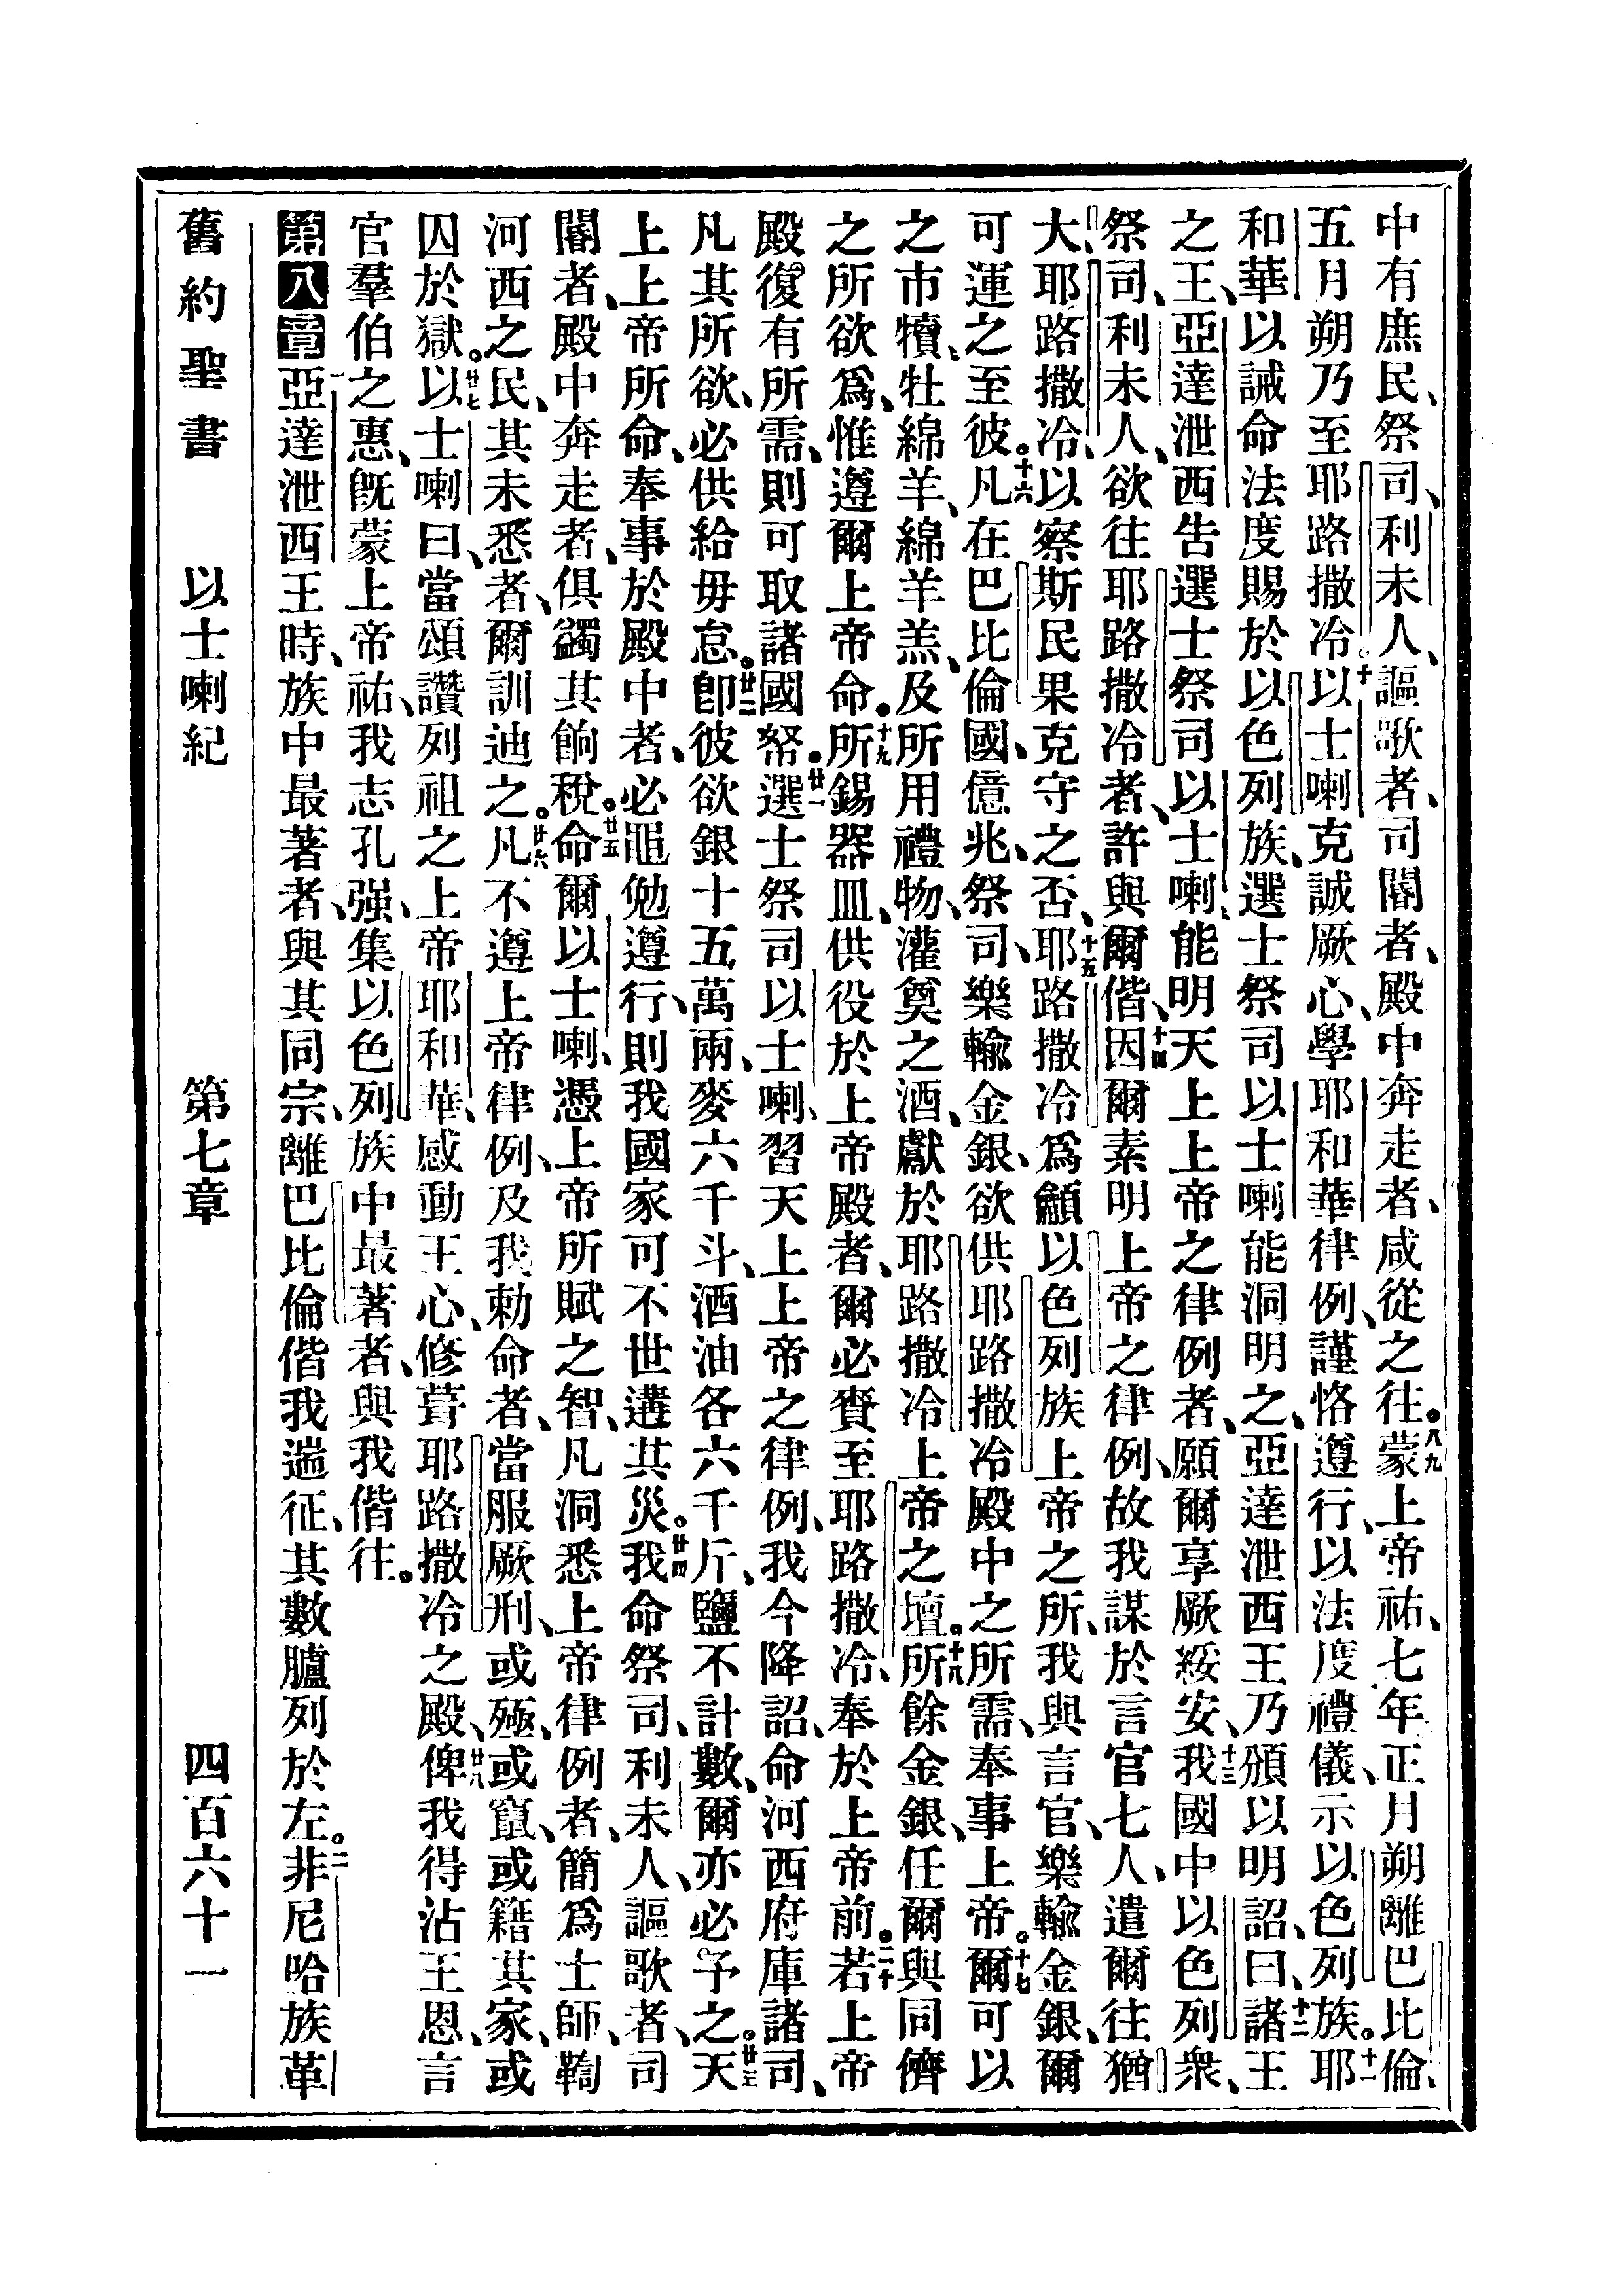 中有庶民、祭司、利未人、謳歌者、司閽者、殿中奔走者、咸從之往。八九蒙上帝祐、七年正月朔離巴比倫、
五月朔乃至耶路撒冷。十以士喇克誠厥心、學耶和華律例、謹恪遵行、以法度禮儀、示以色列族。十一耶
和華以誡命法度賜於以色列族、選士祭司以士喇能洞明之、亞達泄西王乃頒以明詔、曰、十二諸王
之王、亞達泄西告選士祭司以士喇、能明天上上帝之律例者、願爾享厥綏安、十三我國中以色列衆、
祭司、利未人、欲往耶路撒冷者、許與爾偕、十四因爾素明上帝之律例、故我謀於言官七人、遣爾往猶
大、耶路撒冷、以察斯民果克守之否、十五耶路撒冷爲籲以色列族上帝之所、我與言官、樂輸金銀、爾
可運之至彼。十六凡在巴比倫國、億兆、祭司、樂輸金銀、欲供耶路撒冷殿中之所需、奉事上帝。十七爾可以
之市犢、牡綿羊、綿羊羔、及所用禮物、灌奠之酒、獻於耶路撒冷上帝之壇。十八所餘金銀、任爾與同儕
之所欲爲、惟遵爾上帝命。十九所錫器皿、供役於上帝殿者、爾必賫至耶路撒冷、奉於上帝前。二十若上帝
殿復有所需、則可取諸國帑。廿一選士祭司以士喇、習天上上帝之律例、我今降詔、命河西府庫諸司、
凡其所欲、必供給毋怠。廿二卽彼欲銀十五萬兩、麥六千斗、酒油各六千斤、鹽不計數、爾亦必予之。廿三天
上上帝所命、奉事於殿中者、必黽勉遵行、則我國家可不世遘其災。廿四我命祭司、利未人、謳歌者、司
閽者、殿中奔走者、俱蠲其餉稅。廿五命爾以士喇、憑上帝所賦之智、凡洞悉上帝律例者、簡爲士師、鞫
河西之民、其未悉者、爾訓迪之。廿六凡不遵上帝律例、及我勅命者、當服厥刑、或殛、或竄、或籍其家、或
囚於獄。廿七以士喇曰、當頌讚列祖之上帝耶和華、感動王心、修葺耶路撒冷之殿、廿八俾我得沾王恩、言
官羣伯之惠、旣蒙上帝祐、我志孔强、集以色列族中最著者、與我偕往。
第八章 一亞達泄西王時、族中最著者、與其同宗、離巴比倫偕我遄征、其數臚列於左。二非尼哈族革
舊約聖書 以士喇紀 第七章 四百六十一